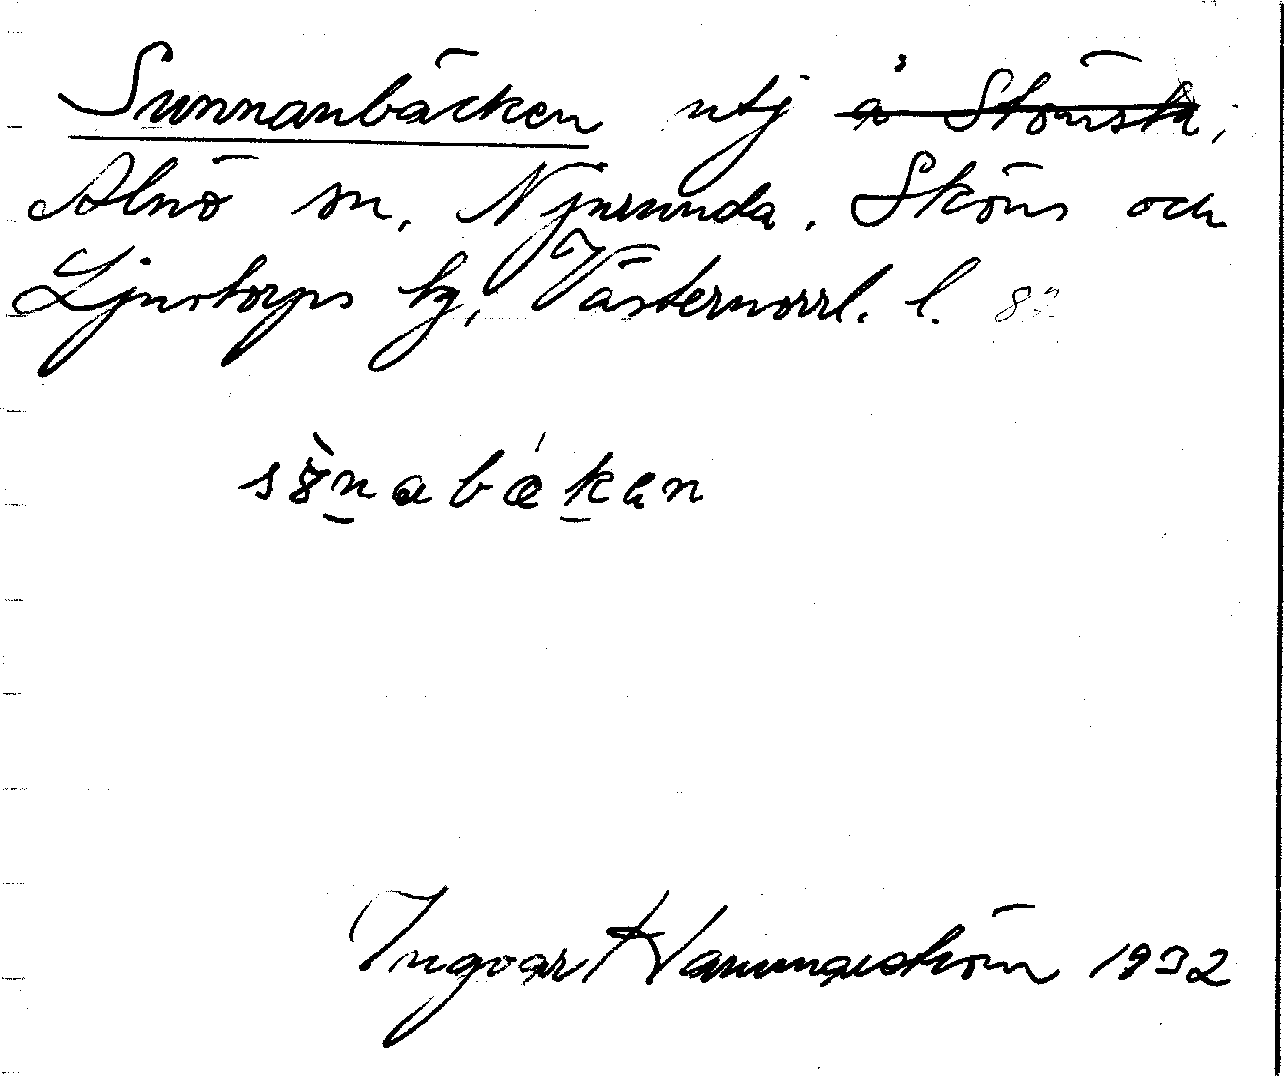 Sunnanbäcken utj å Stönsta,
Alnö sn, Njurunda, Sköns och
Ljustorps tg, Västernorrl. l.
Ingvar Hammarström 1932